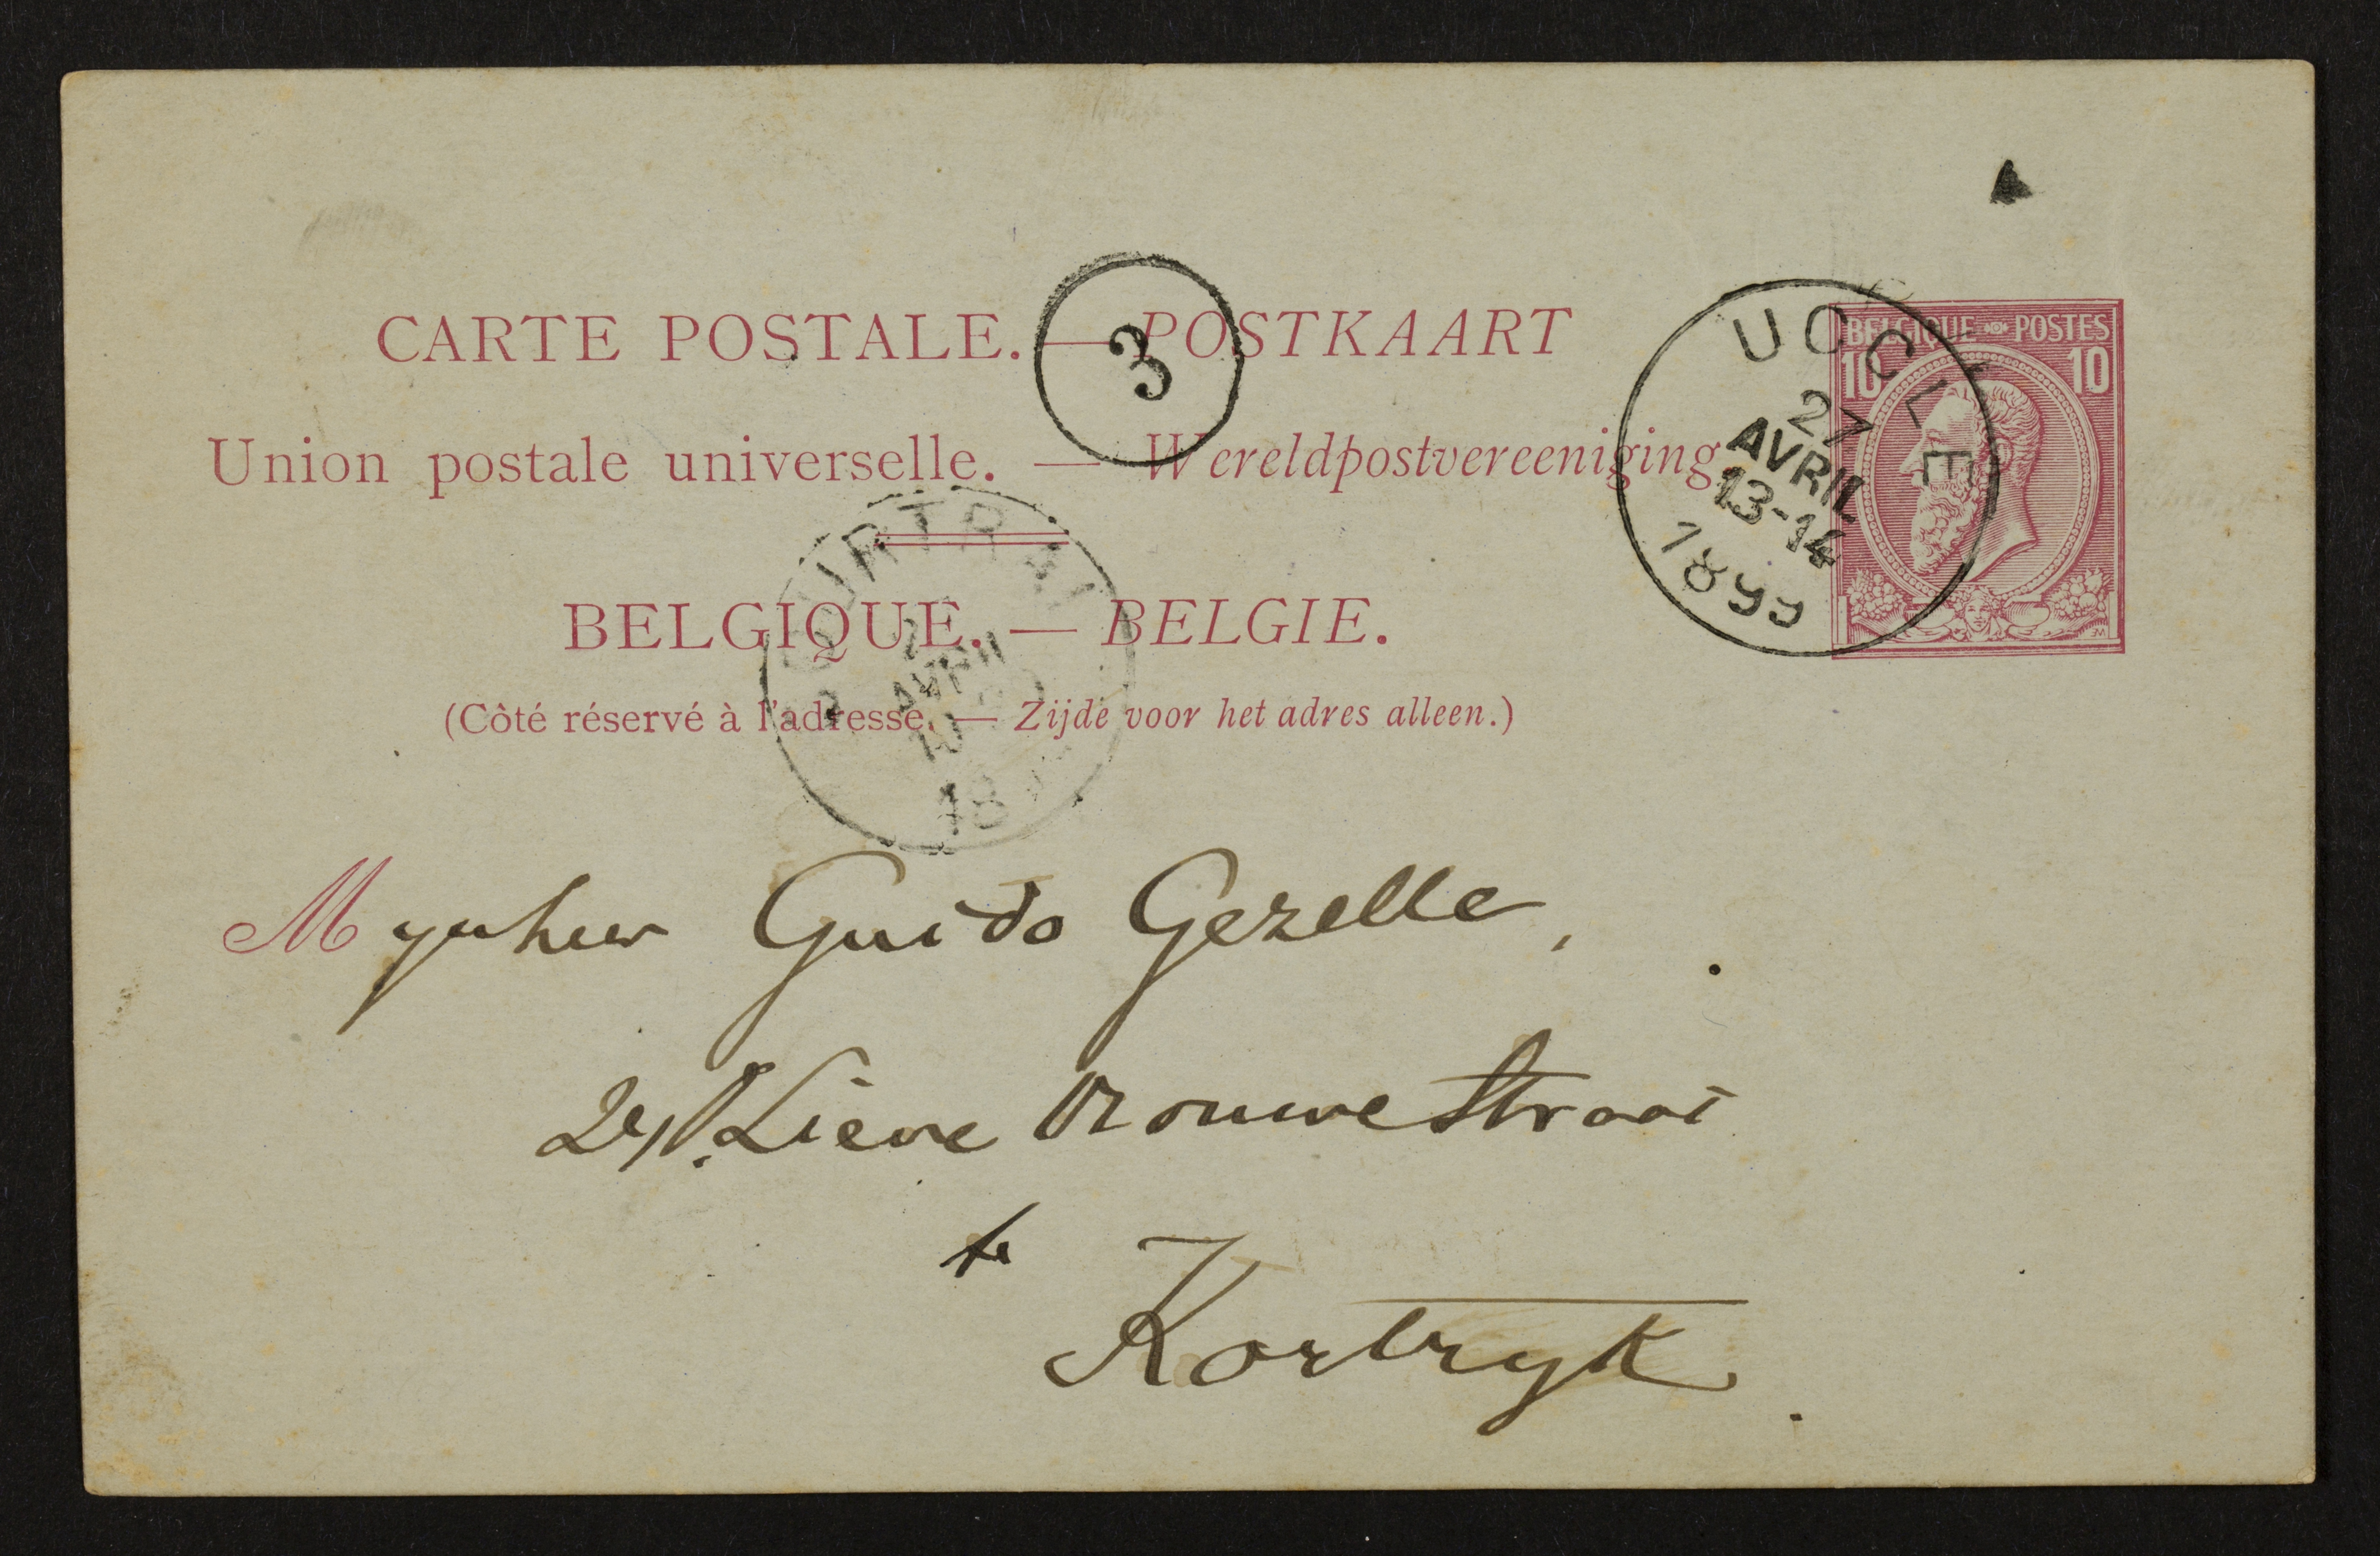 BELGIQUE POSTES
10 10
UCCLE
27
AVRIL
13-14
1899
3
CARTE POSTALE. — POSTKAART
Union postale universelle. — Wereldpostvereeniging
COURTRAI
AVRIL
18
BELGIQUE. — BELGIE.
(Côté réservé à l'adresse. — Zijde voor het adres alleen.)
Mynheer Guido Gezelle,
Lieve Vrouwe Straat
te
Kortryk